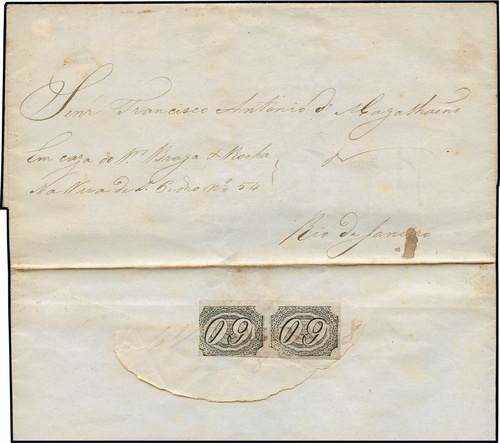 Senr. Francisco Antonio de Magalhaens
Em caza do Snr. Braga & Rocha
Na Rua de S. Pedro No. 54
Rio de Janeiro